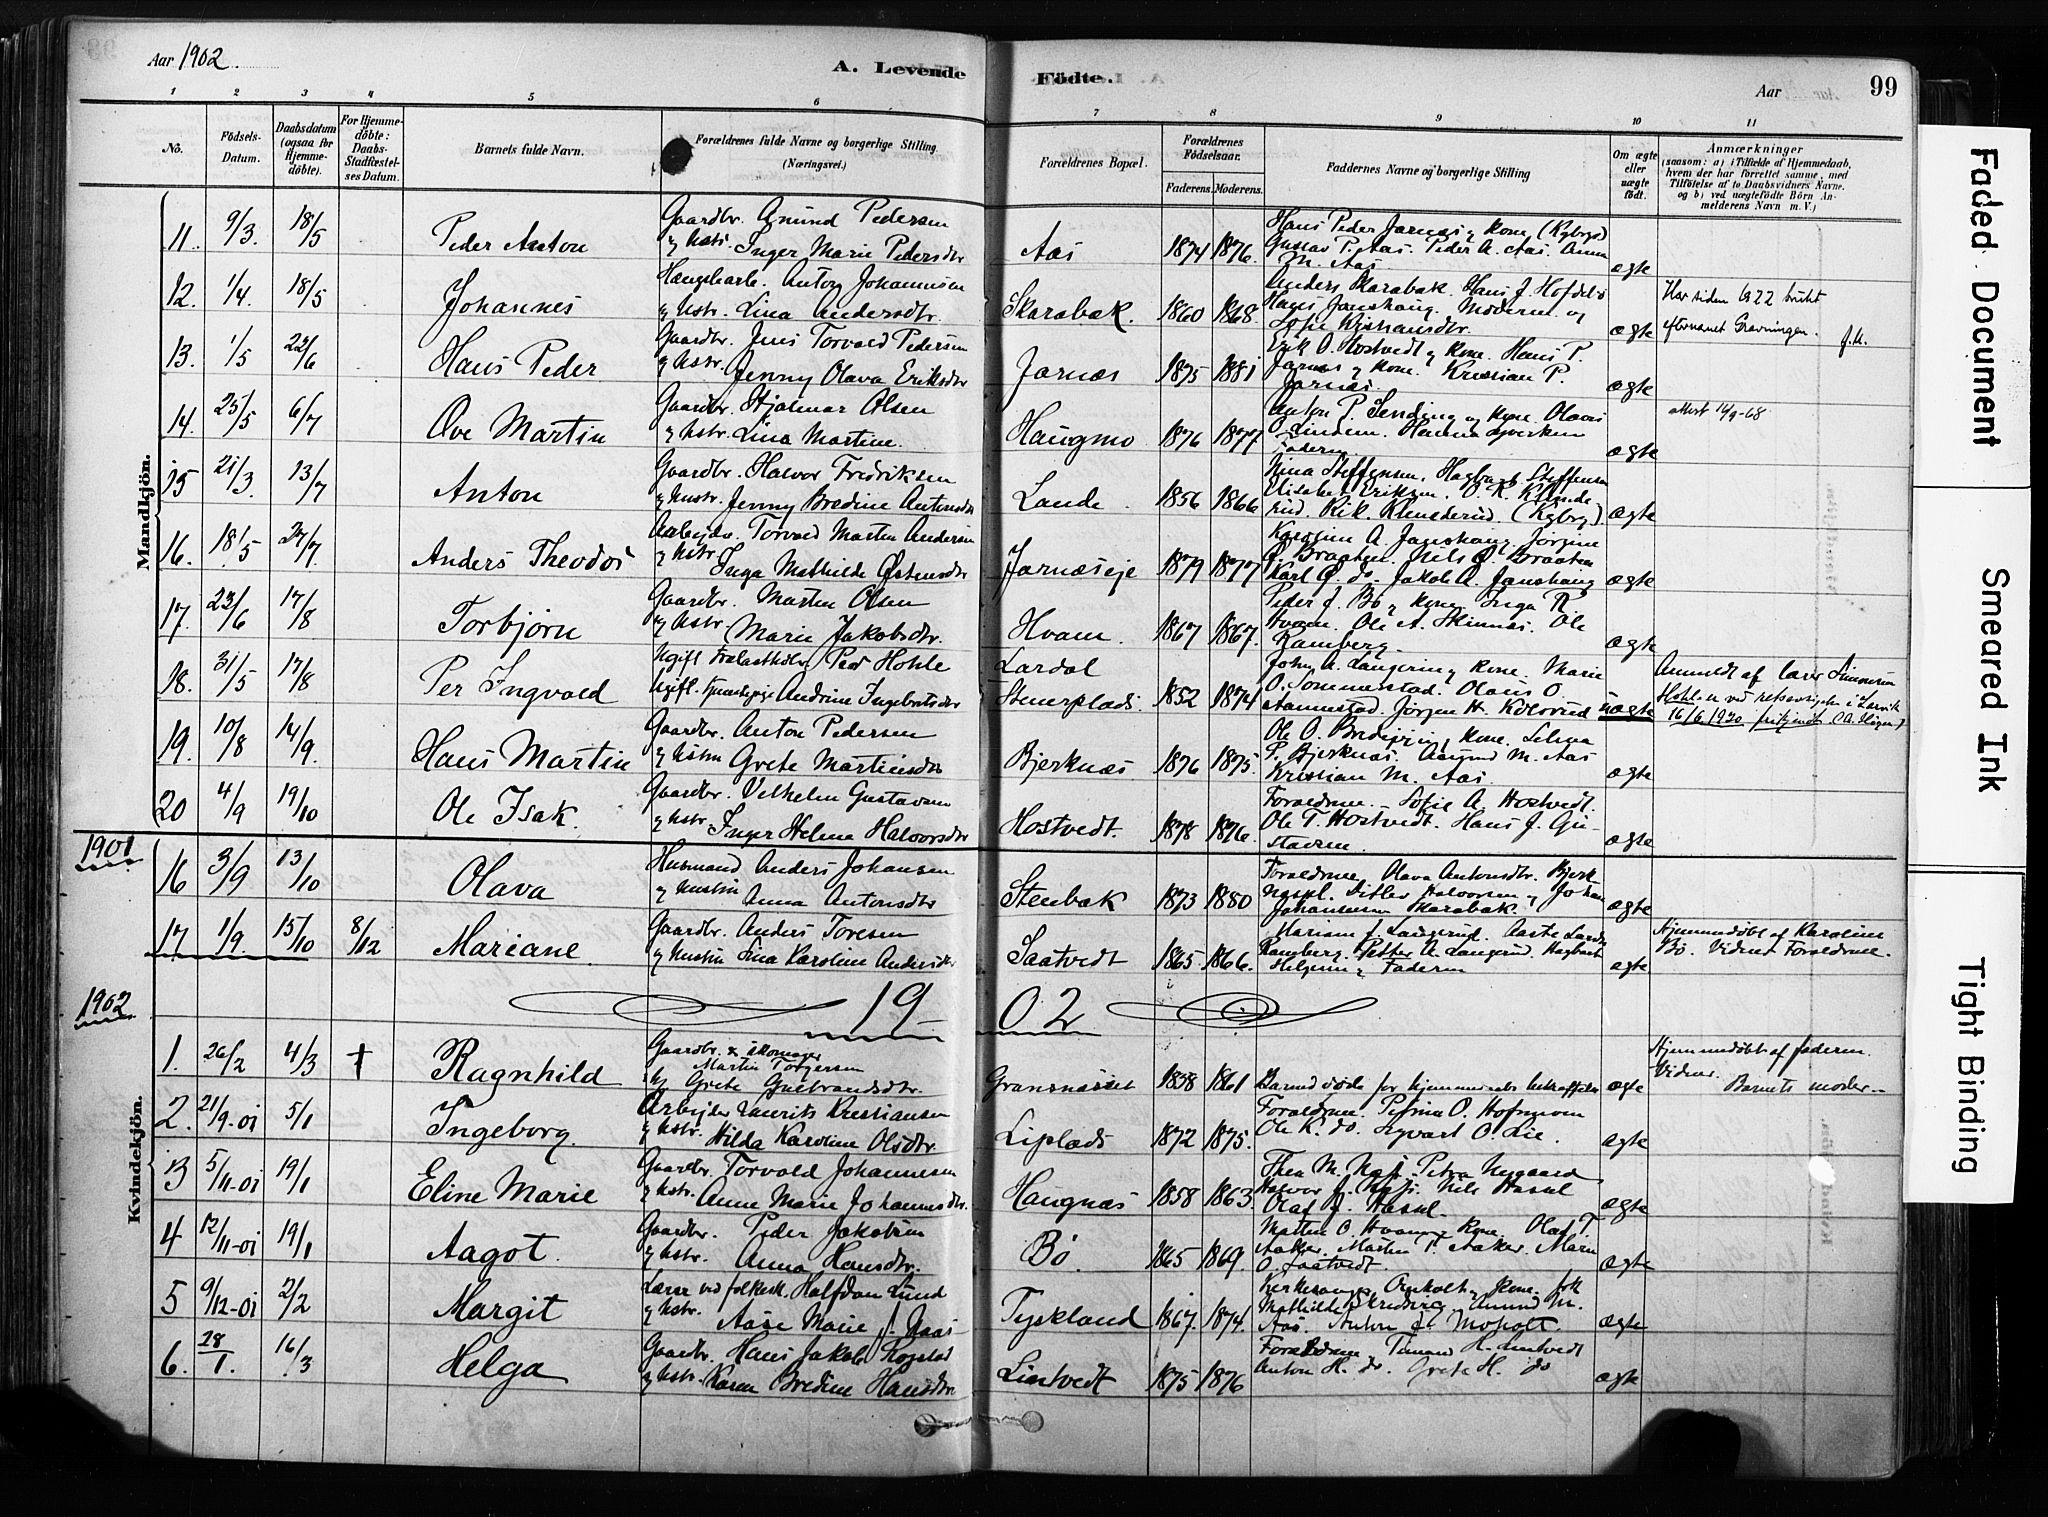 Aar 1902
A. Levende Födte.
Aar
99
1 2 3 4 5 6 7 8 9 10 11
No.
Födsels-
Datum.
Daabsdatum
(ogsaa for
Hjemme-
döbte).
For Hjemme-
döbte:
Daabs-
Stadfæstel-
ses Datum.
Barnets fulde Navn.
Forældrenes fulde Navne og borgerlige Stilling
(Næringsvei.)
Forældrenes Bopæl.
Forældrenes
Födselsaar.
Faderens. Moderens.
Faddernes Navne og borgerlige Stilling
Om ægte
eller
uægte
födt.
Anmærkninger
(saasom: a) i Tilfælde af Hjemmedaab,
hvem der har forrettet samme, med
Tilföielse af to Daabsvidners Navne.
og b) ved uægtefödte Börn An-
melderens Navn m.V.)
Mandkjön.
11. 9/3. 18/5 Peder Anton
Gaardbr. Amund Pedersen
og hustr. Inger Marie Pedersdtr
Aas 1874 1876.
Hans Peder Jarnæs og kone (Kyberg)
Gustav P. Aas. Peder A. Aas. Anna
M. Aas
ægte
12. 1/4. 18/5 Johannes
Anton Johannesen
og hstr. Lina Andersdtr.
Skarabak. 1860 1868.
Anders Skarabak. Hans J.
Hans Janshaug. Moderen og
Sofie
ægte
Har siden 1922 brukt
efternavnet Gravningen.
13. 1/5 22/6 Hans Peder
Gaardbr. Jens Torvald Pedersen
og hstr. Jenny Olava Eriksdtr
Jarnæs 1875 1881
Erik O. Hostvedt og kone. Hans P.
Jarnæs og kone. Kristian P.
Jarnæs.
ægte
14. 25/5 6/7 Ove Martin
Gaardbr. Hjalmar Olsen
og hstr. Lina Martine.
Haugmo 1876 1877
Anton P. Sending og kone. Olaus
O. Lindem.
Faderen.
ægte
attest 16/9-68
15 21/3. 13/7 Anton
Gaardbr. Halvor Fredriksen
og hustr. Jenny Bredine Antonsdtr
Lande. 1856 1866
Nina Steffensen. Hagbart Steffensen
Elisabet Eriksen.
(Kyberg)
ægte
16. 18/5 27/7. Anders Theodor
Arbejds. Torvald Martin Andersen
og hstr. Inga Mathilde Østensdtr
Jarnæseje 1879 1877
Karoline A. Janshaug. Jørgine
Ø. Braaten. Nils Ø. Braaten
Karl Ø. do. Jakob A. Janshaug
ægte
17. 23/6 17/8 Torbjørn
Gaardbr. Martin Olsen
og hstr. Marie Jakobsdtr.
Hvam. 1867 1867.
Peder J. Bø og kone. Inga R.
Hvam. Ole A. Ole
Ramberg.
ægte
18. 31/5 17/8 Per Ingvald
Ugift
Ugift. Andrine Ingebretsdtr
Lardal
Stenerplads. 1852 1874
John A. Langerin og kone. Marie
O. Sommerstad. Olaus O.
Jørgen H. Kolsrud
uægte
Anmeldt af
Hohle er ved i Larvik
16/6 1920 frifundet
19. 10/8 14/9. Hans Martin
Gaardbr. Anton Pedersen
og hstru Grete Martinsdtr
Bjerknæs 1876 1875.
Ole O. og kone. Selma
P. Bjerknæs. Amund M. Aas
Kristian M. Aas
ægte
20 4/9 19/10 Ole Isak.
Gaardbr. Vilhelm Gustavsen
og hstr. Inger Helene Halvorsdtr
Hostvedt. 1878 1876.
Forældrene. Sofie A. Hostvedt.
Ole T. Hostvedt. Hans J. Gu-
stavsen.
ægte
1901
16 3/9 13/10 Olava
Husmand Anders Johansen
og hustru Anna Antonsdtr
Stenbak 1873 1880
Forældrene, Olava Antonsdtr. Bjerk
Ditlev Halvorsen og Johan
Johannesen Skarabak.
ægte
17 1/9. 15/10 8/12 Mariane.
Gaardbr. Anders Toresen
og hustru Lina Karoline Andersdtr
Saatvedt 1865 1866.
Mariane J. Langerud. Aaste
Ramberg. Petter A. Langerud. Hagbart
Helgen og Faderen
ægte
Hjemmedøbt af Karoline
Bø. Vidner Forældrene.
1902
19 02
Kvindekjön.
1. 26/2 4/3 † Ragnhild
Gaardbr. & skomager
Martin Torgersen
og Grete Gulbrandsdtr.
Gransnæsset 1858 1861
Barnet døde før hjemmedaabs bekræftelse
ægte
Hjemmedøbt af faderen.
Vidner. Barnets moder
2. 21/9-01 5/1 Ingeborg.
Arbejder Laurits Kristiansen
og hstr. Hilda Karoline Olsdtr.
Liplads 1872 1875.
Forældrene. Petrine O.
Ole K. do. Syvert O. Lie.
ægte
3 5/11-01 19/1 Eline Marie
Gaardbr. Torvald Johannesen
og hstr. Anne Marie Johannesdtr.
Haugnæs 1858 1863.
Thea M. Petra Nygaard
Halvor J. Nils Hassel
Olaf J. Hassel.
ægte
4 12/11-01 19/1 Aagot.
Gaardbr. Peder Jakobsen
og hstr. Anna Hansdtr.
Bø. 1865 1869.
Martin O. Hvam og kone. Olaf T.
Aaker. Martin T. Aaker. Maren
O. Saatvedt.
ægte
5 9/12-01 2/2 Margit
Lærer ved folkesk. Halfdan Lund
og hstr. Aase Marie J. Naas
Tyskland 1867. 1874.
Kirkesanger og kone. frk
Mathilde Amund M.
Aas. Anton J. Moholt.
ægte
6. 28/1. 16/3 Helga
Gaardbr. Hans Jakob
og hstr. Karen Bredine Hansdtr
Lintvedt 1875 1876
Forældrene Timand H. Lintvedt
Anton H. do Grete H. do
ægte
Faded Document
Smeared Ink
Tight Binding